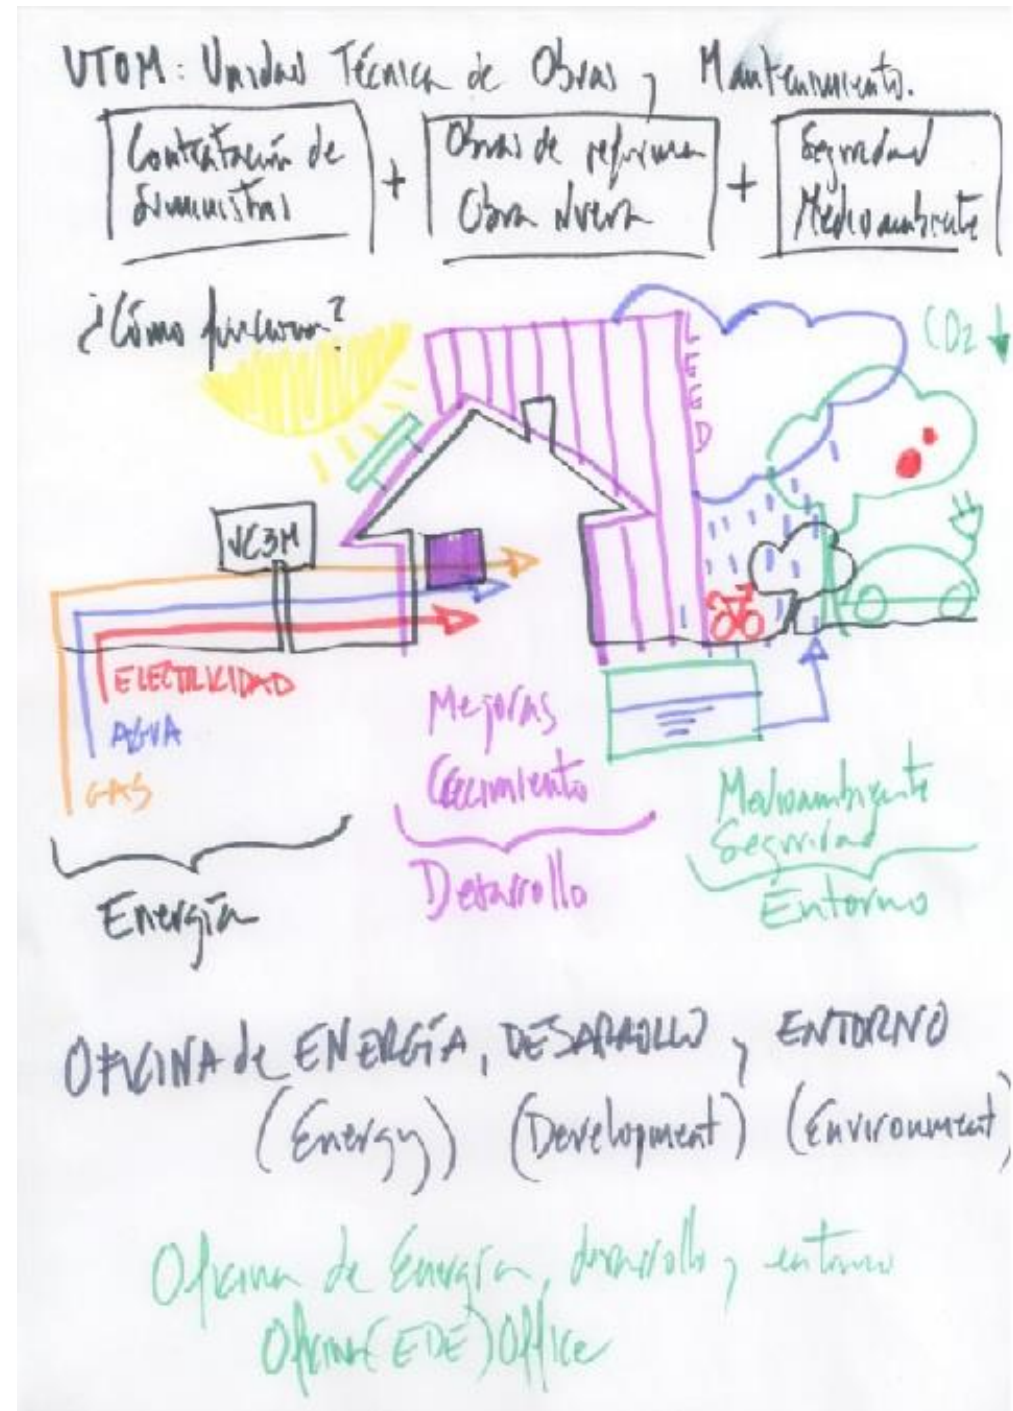 UTOM: Unidad Técnica de Obras y Mantenimiento.
Contratación de
Suministros
+
Obras de reforma
Obra Nueva
+
Seguridad
Medioambiente
¿Cómo funciona?
LEED
CO2
UC3M
ELECTRICIDAD
AGUA
GAS
Mejoras
Crecimiento
Medioambiente
Seguridad
Energía
Desarrollo
Entorno
OFICINA de ENERGÍA, DESARROLLO y ENTORNO
(Energy) (Development) (Environment)
Oficina de Energía, desarrollo y entorno
Oficina (EDE) Office